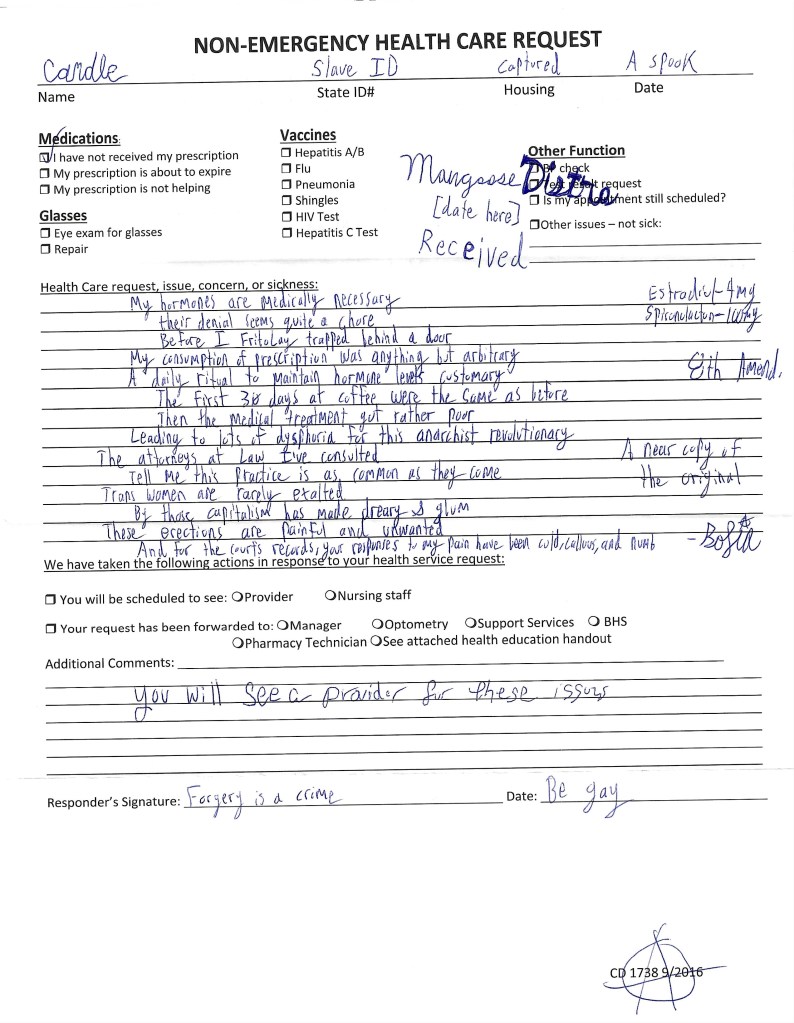 NON-EMERGENCY HEALTH CARE REQUEST
Candle Slave ID Captured A spook
Name State ID# Housing Date
Medications:
I have not received my prescription
My prescription is about to expire
My prescription is not helping
Glasses
Eye exam for glasses
Repair
Vaccines
Hepatitis A/B
Flu
Pneumonia
Shingles
HIV Test
Hepatitis C Test
Mangoose Distro
[date here]
Received
Other Function
BP check
Test result request
Is my appointment still scheduled?
Other issues – not sick:
Health Care request, issue, concern, or sickness:
My hormones are medically necessary
their denial seems quite a chore
Before I FritoLay trapped behind a door
My consumption of prescription was anything but arbitrary
A daily ritual to maintain hormone levels customary
The first 30 days at coffee were the same as before
Then the medical treatment got rather poor
Leading to lots of dysphoria for this anarchist revolutionary
The attorneys at Law I've consulted
Tell me this practice is as common as they come
Trans women are rarely exalted
By those capitalism has made dreary & glum
These erections are painful and unwanted
And for the court's records, your responses to my pain have been cold, callous, and numb
Estradiol-4mg
Spironolacton-100mg
8th Amend.
A near copy of
the original
We have taken the following actions in response to your health service request:
You will be scheduled to see: Provider Nursing staff
Your request has been forwarded to: Manager Optometry Support Services BHS
Pharmacy Technician See attached health education handout
Additional Comments:
you will see a provider for these issues
Responder's Signature: Forgery is a crime Date: Be gay
CD 1738 9/2016